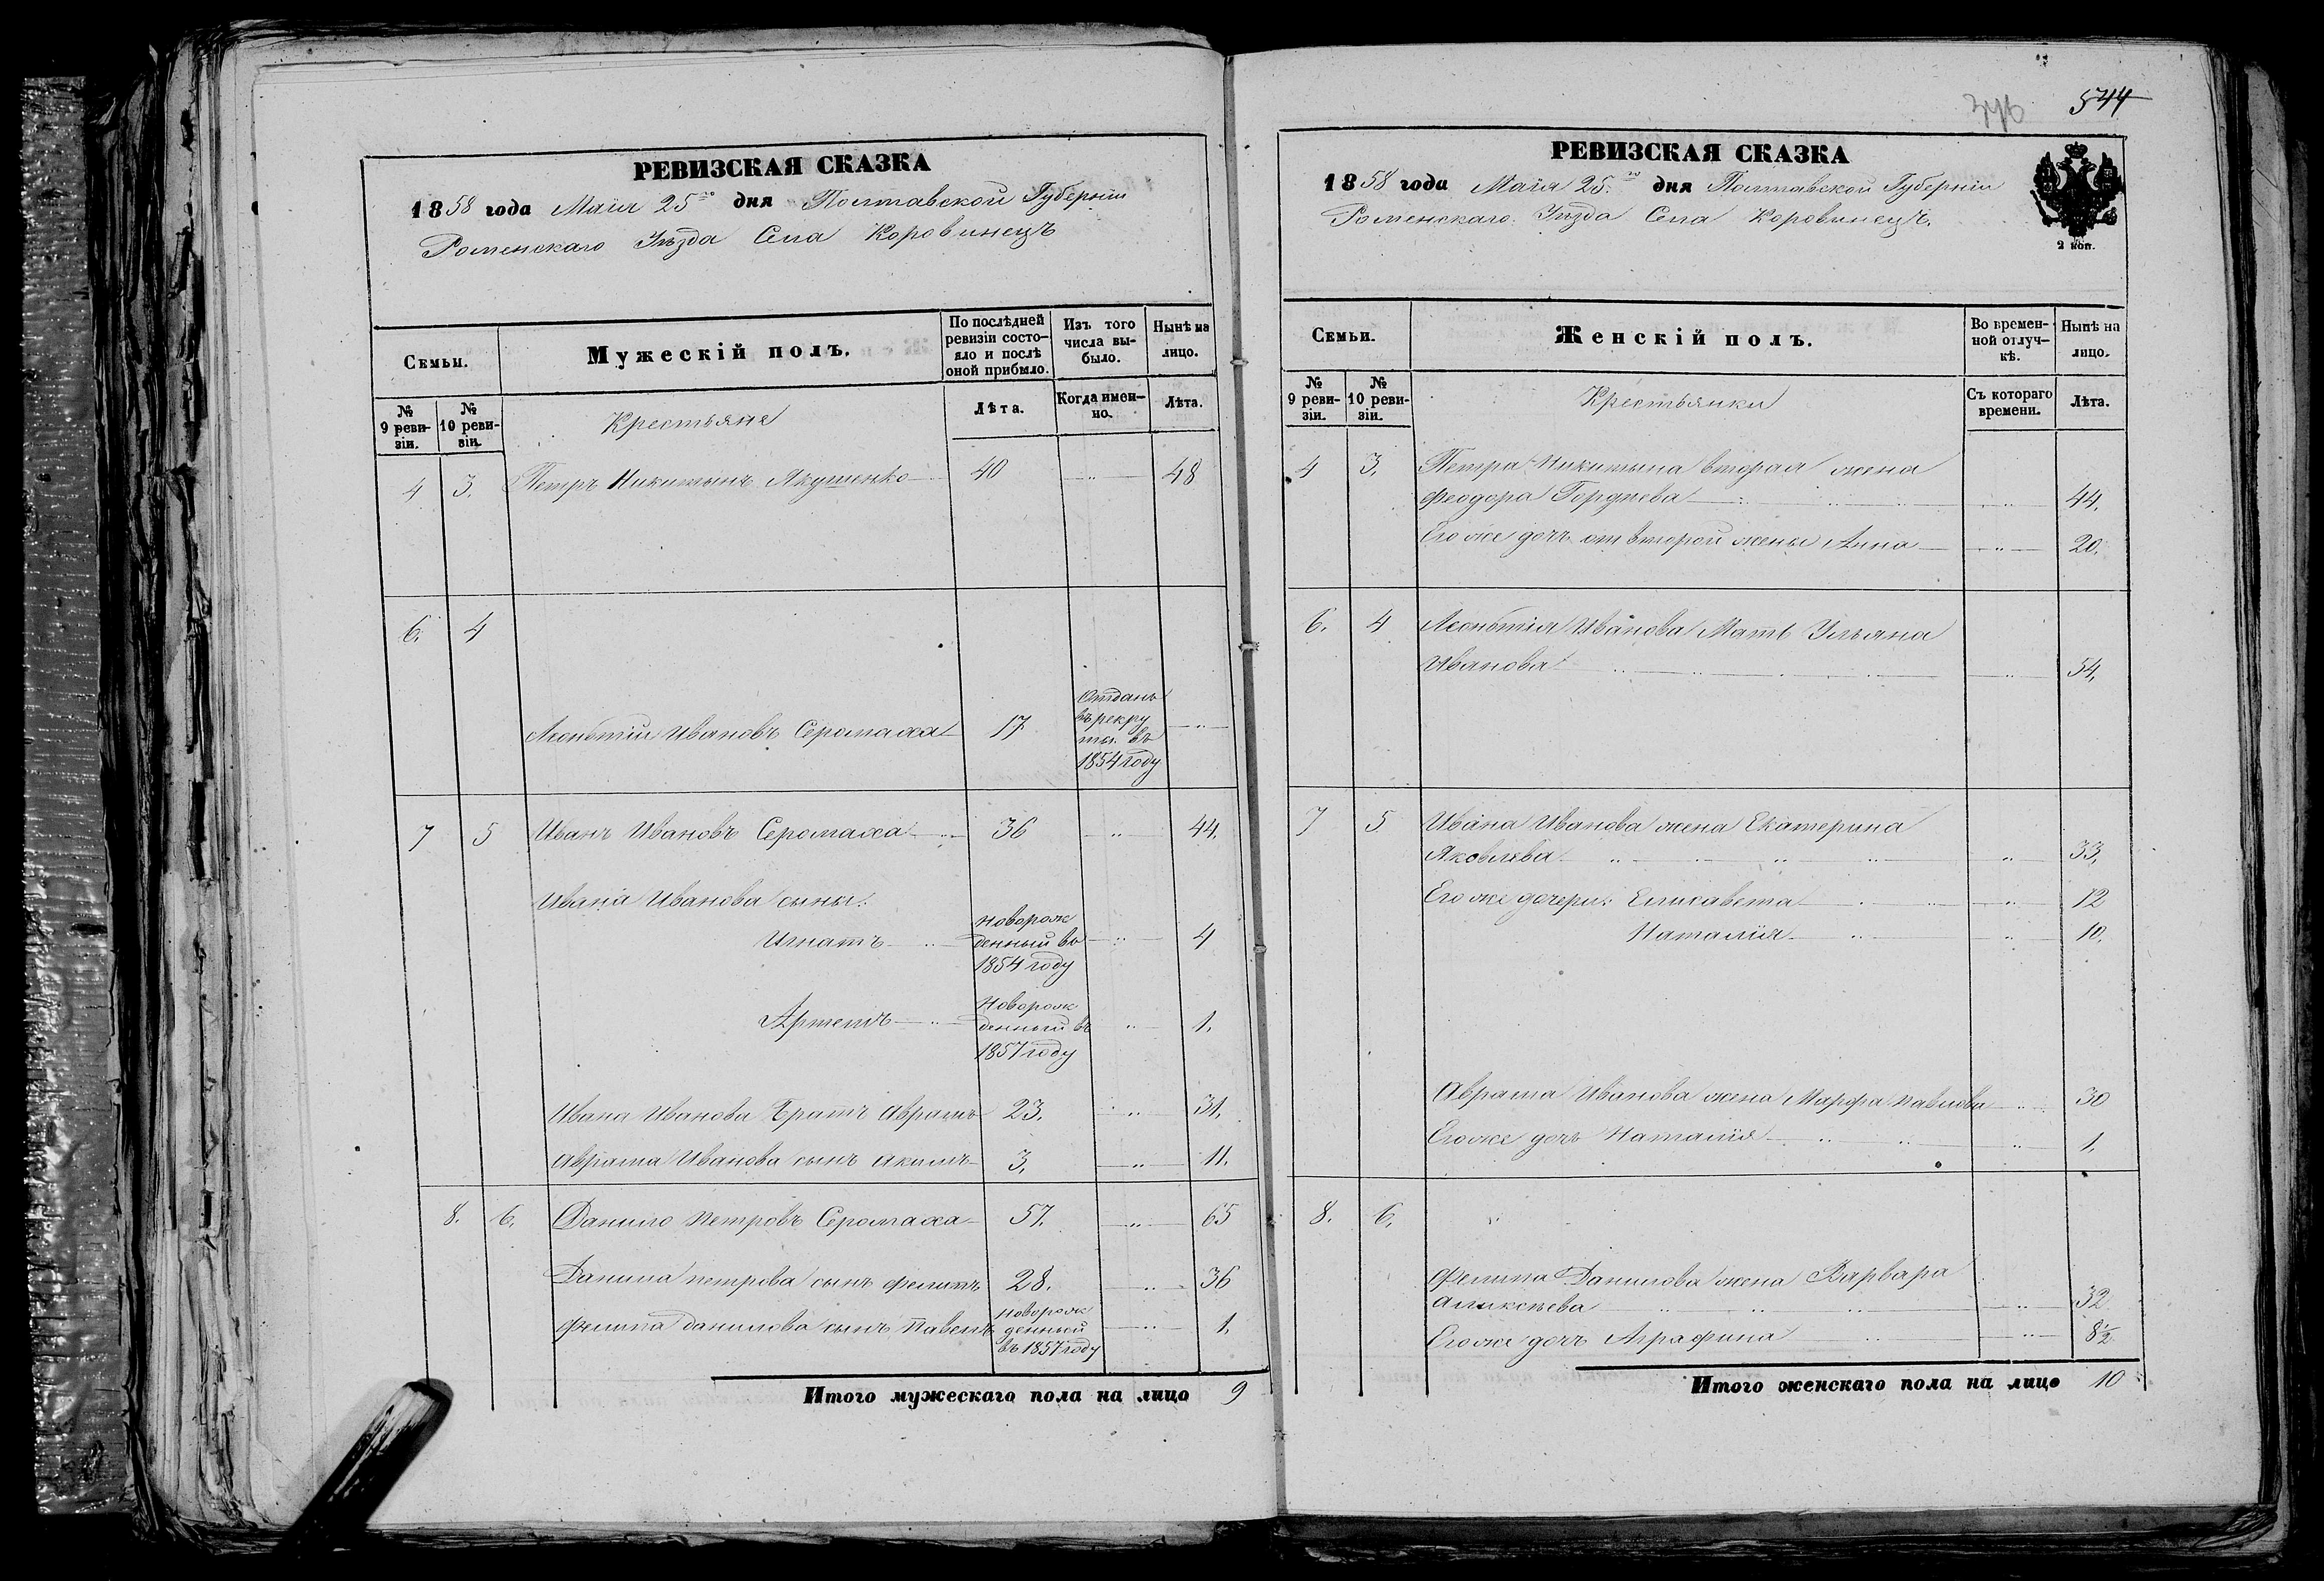 РЕВИЗСКАЯ СКАЗКА
1858 года Маія 25го дня Полтавской Губерніи
Роменскаго Уѣзда Села Коровинецъ
Семьи.
Мужескій полъ.
По послѣдней ревизіи состо-
яло и послѣ
оной прибыло.
Изъ того
числа вы-
было.
Нынѣ на
лицо.
№
9 реви-
зіи.
№
10 реви-
зіи.
Крестьяне
Лѣта.
Когда имен-
но.
Лѣта.
4 3. Петръ Никитынъ Якушенко 40 — " — 48
6. 4
Леонтій Ивановъ Серомаха 17
Отданъ
въ рекру
ты въ
1854 году
— " —
7 5 Иванъ Ивановъ Серомаха 36 — " — 44.
Ивана Иванова сыны:
Игнатъ
новорож
денный въ
1854 году
— " — 4
Артемъ
Новорож
денный въ
1857 году
" — 1.
Ивана Иванова Братъ Аврамъ 23. " 31.
Аврама Иванова сынъ Акимъ 3. — " — 11.
8. 6. Данило Петровъ Серомаха 57. — " — 65
Данила Петрова сынъ Филипъ 28. — " — 36
Филипа Данилова сынъ Павелъ
новорож
денный
въ 1857 году
— " — 1.
Итого мужескаго пола на лицо 9
544
РЕВИЗСКАЯ СКАЗКА
1858 года Маія 25го дня Полтавской Губерніи
Роменскаго Уѣзда Села Коровинецъ.
2 коп.
Семьи.
Женскій полъ.
Во времен-
ной отлуч-
кѣ.
Нынѣ на
лицо.
№
9 реви-
зіи.
№
10 реви-
зіи.
Крестьянки
Съ котораго
времени.
Лѣта.
4 3. Петра Никитына вторая жена
Феодора Гордиева — " — 44.
Его же дочь отъ второй жены Анна — " — 20.
6. 4 Леонтія Иванова Мать Ульяна
Иванова — " — 54.
7 5 Ивана Иванова жена Екатерина
Яковлева " — 33.
Его же дочери: Елисавета — " — 12
Наталія " — 10.
Аврама Иванова жена Марфа Павлова — " — 30
Его же дочь Наталія " — 1.
8. 6. "
Филипа Данилова жена Варвара
Аликсѣева — " — 32
Его же дочь Аграфина — " — 8½
Итого женскаго пола на лицо 10